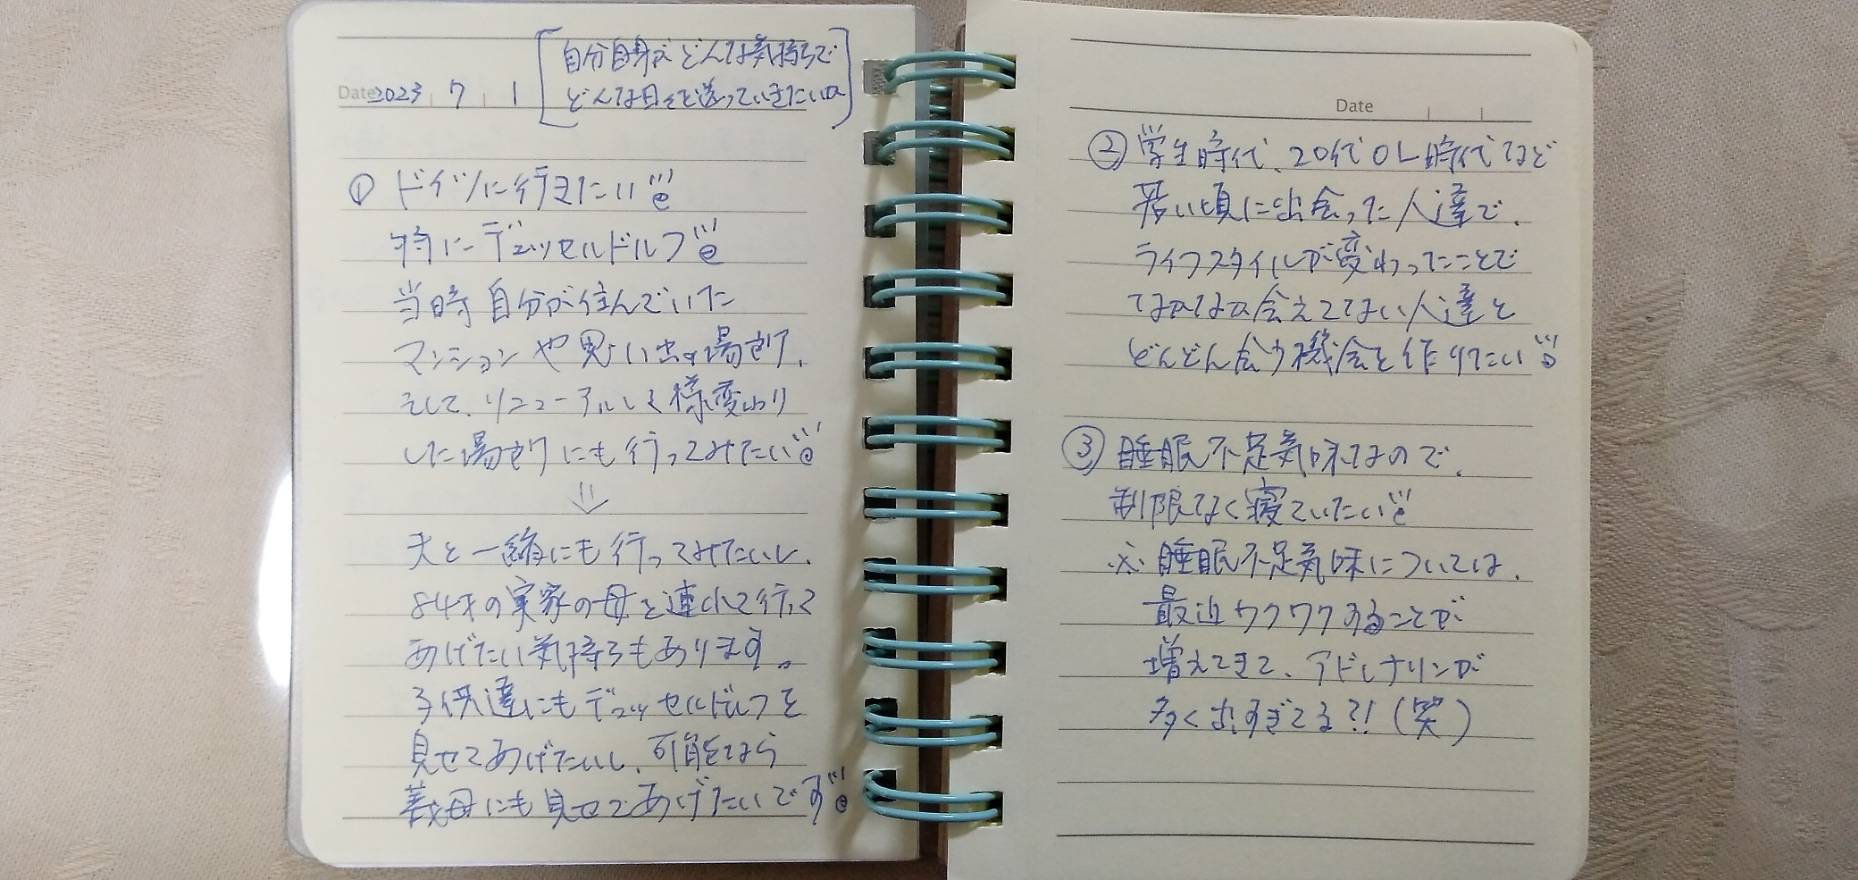 Date 2023 7 1
自分自身がどんな気持ちで
どんな日々を送っていきたいか
① ドイツに行きたい!!!
特にデュッセルドルフ!!!
当時自分が住んでいた
マンションや思い出の場所、
そして、リニューアルして様変わり
した場所にも行ってみたい!!!
⇓
夫と一緒にも行ってみたいし、
84才の実家の母を連れて行って
あげたい気持ちもあります。
子供達にもデュッセルドルフを
見せてあげたいし、可能なら
義母にも見せてあげたいです!!!
Date
② 学生時代、20代OL時代など
若い頃に出会った人達で、
ライフスタイルが変わったことで
なかなか会えてない人達と
どんどん会う機会を作りたい!!!
③ 睡眠不足気味なので、
制限なく寝ていたい!!!
※睡眠不足気味については、
最近ワクワクすることが
増えてきて、アドレナリンが
多く出すぎてる?!(笑)